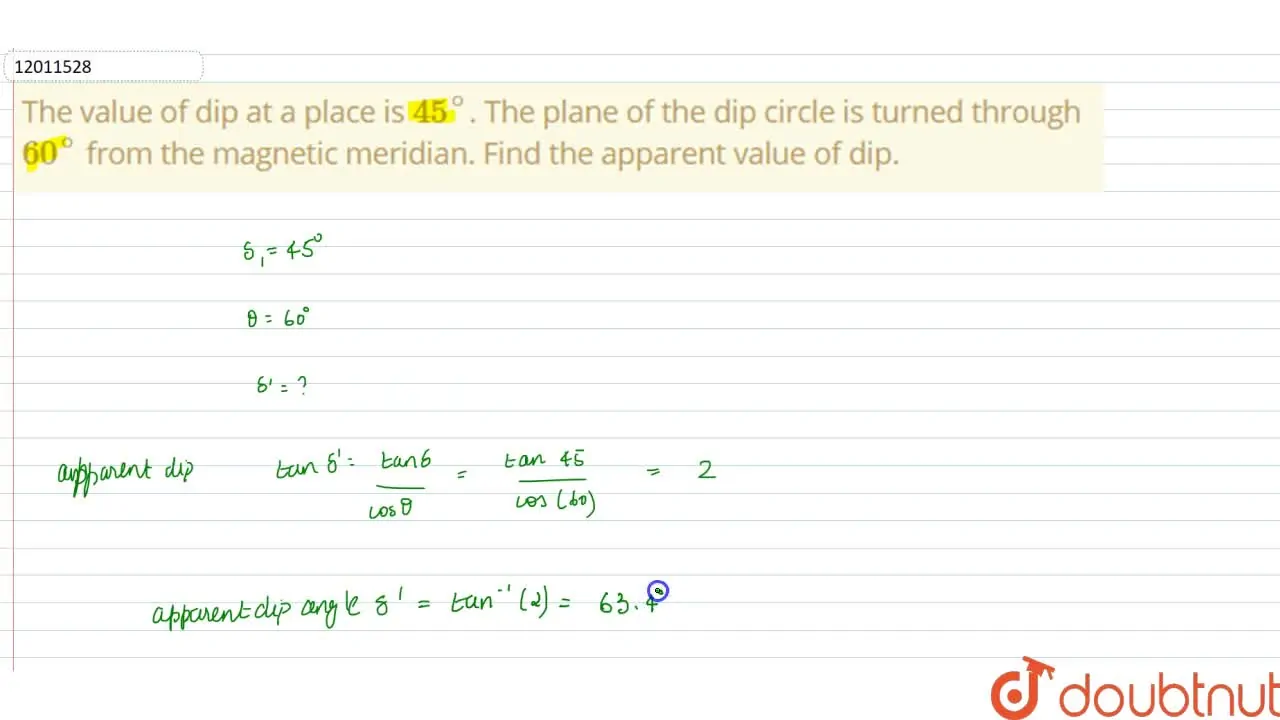 12011528
The value of dip at a place is 45°. The plane of the dip circle is turned through
60° from the magnetic meridian. Find the apparent value of dip.
δ₁ = 45°
θ = 60°
δ' = ?
apparent dip tan δ' = tan δ / cos θ = tan 45 / cos (60) = 2
apparent dip angle δ' = tan⁻¹ (2) = 63.4°
doubtnut